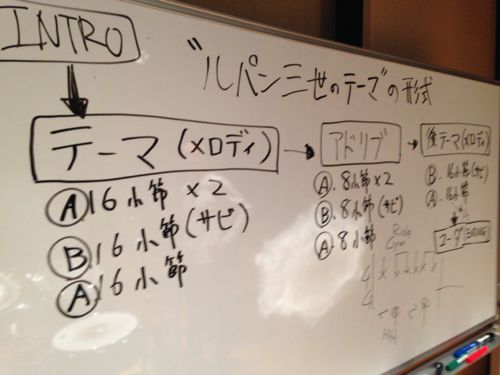 INTRO
"ルパン三世のテーマ"の形式
テーマ(メロディ)
Ⓐ 16小節 ×2
Ⓑ 16小節(サビ)
Ⓐ 16小節
アドリブ
Ⓐ. 8小節×2
Ⓑ. 8小節(サビ)
Ⓐ. 8小節
後テーマ(メロディ)
B. 16小節(サビ)
A. 16小節
コーダ(ENDING)
Ride
Cym